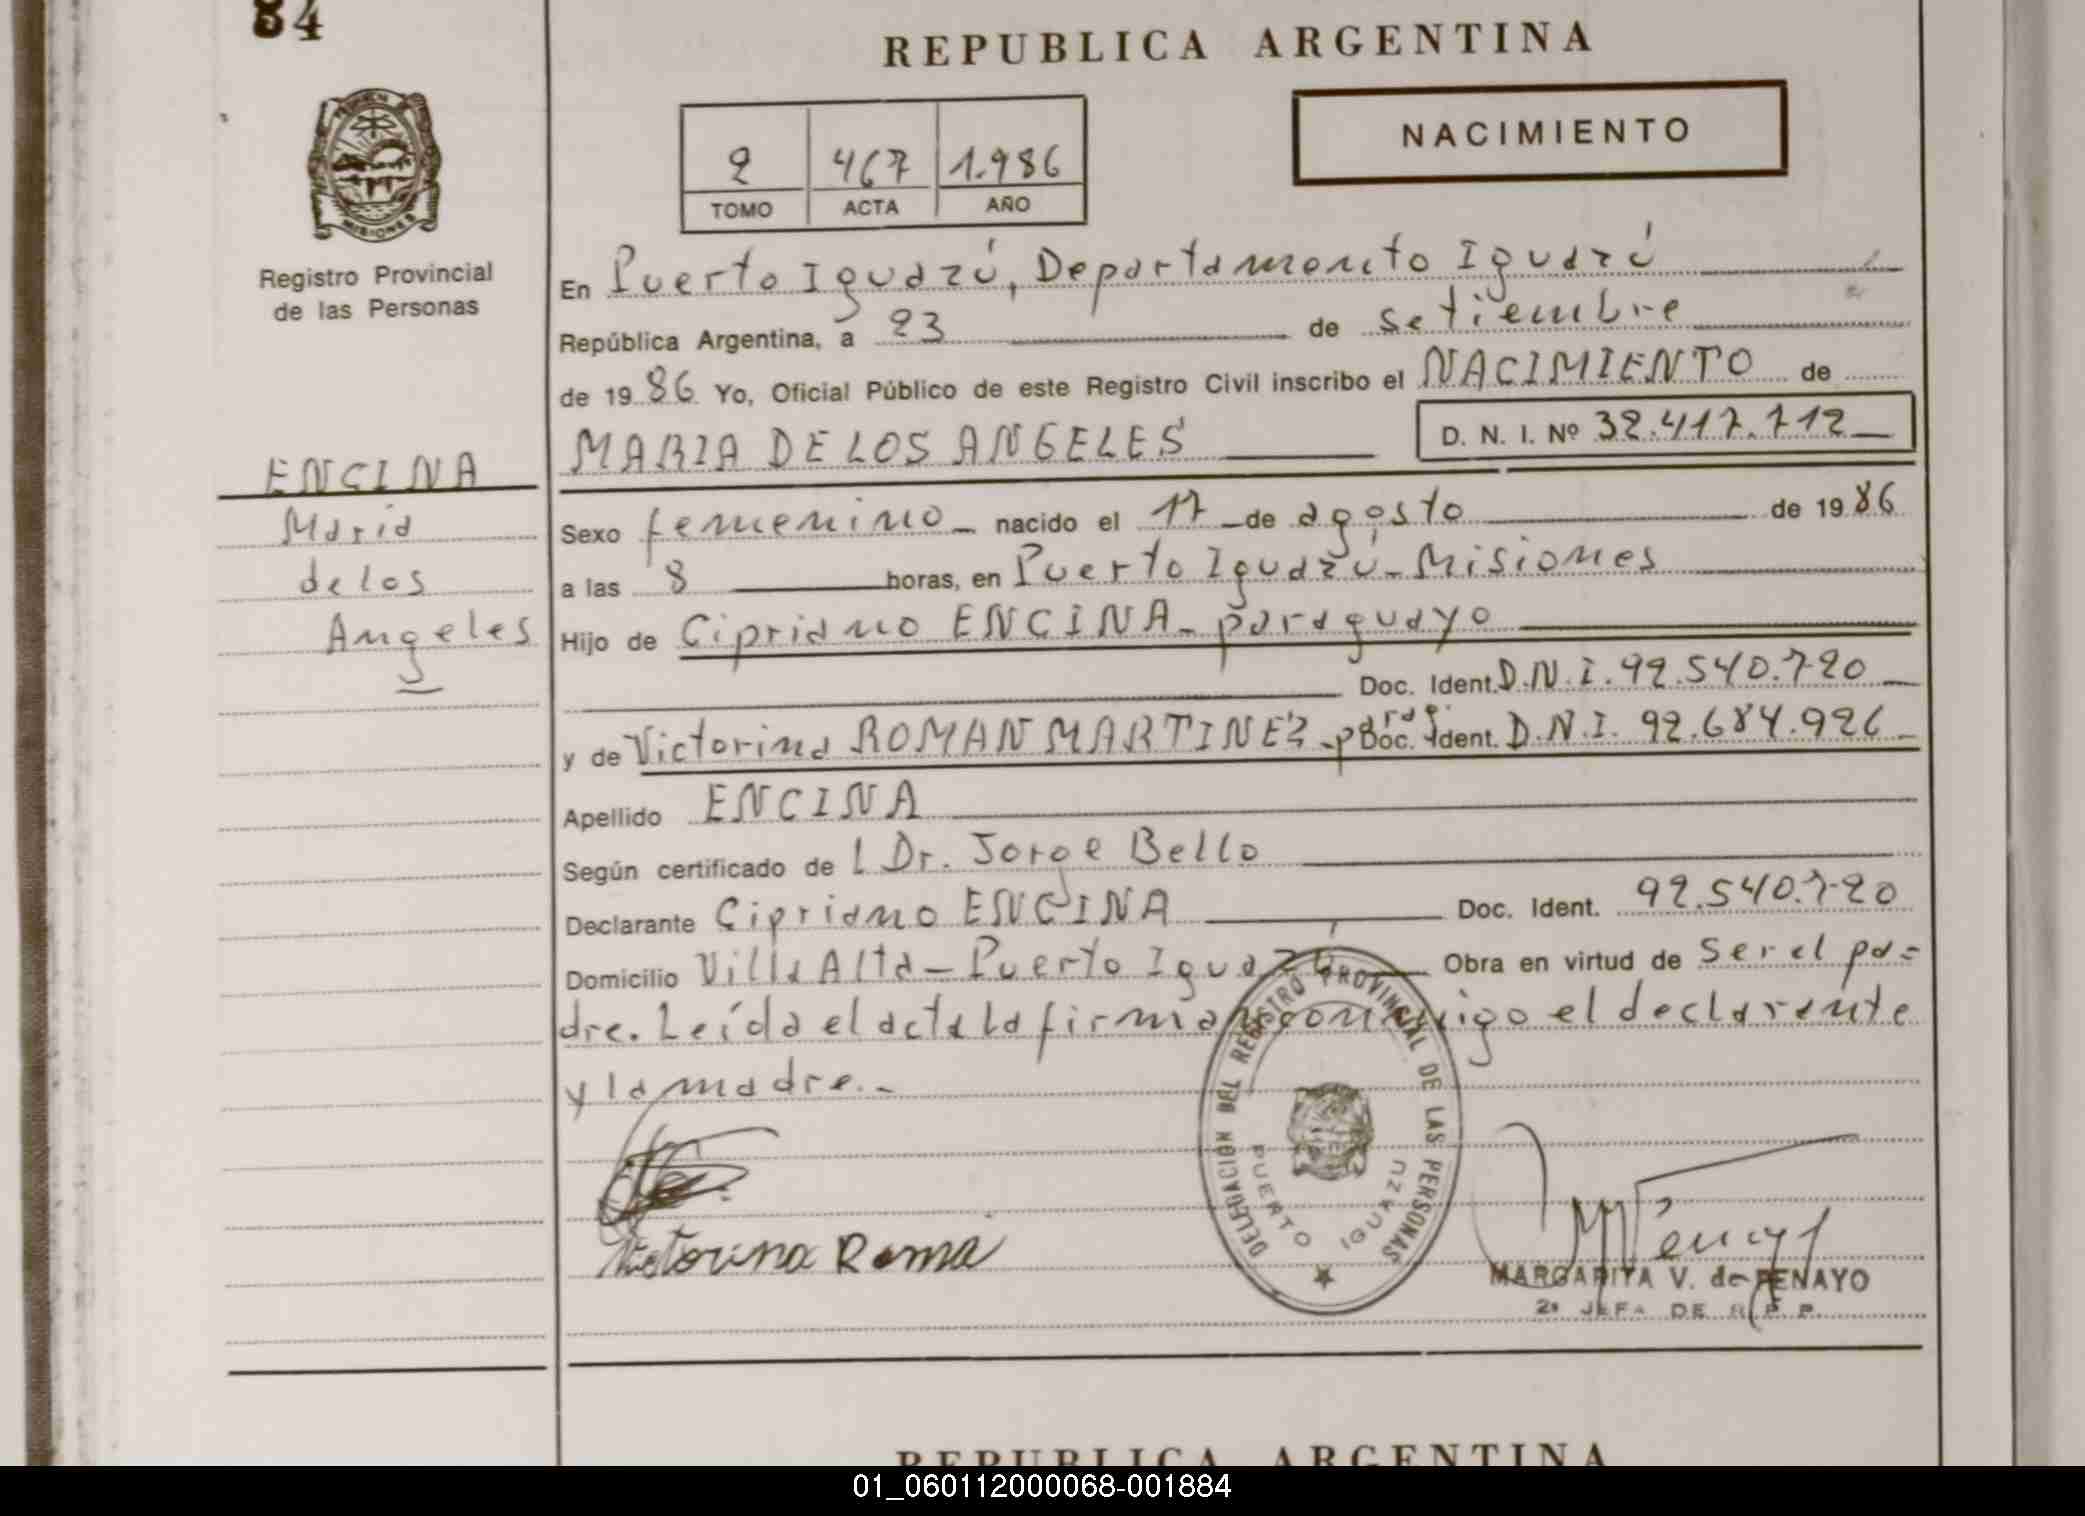 84
REPUBLICA ARGENTINA
NACIMIENTO
2 467 1.986
TOMO ACTA AÑO
MISIONES
Registro Provincial
de las Personas
En Puerto Iguazú, Departamento Iguazú
República Argentina, a 23 de setiembre
de 1986 Yo, Oficial Público de este Registro Civil inscribo el NACIMIENTO de
MARIA DE LOS ANGELES D. N. I. Nº 32.417.712
ENCINA
Maria
de los
Angeles
Sexo femenino nacido el 17 de agosto de 1986
a las 8 horas, en Puerto Iguazú - Misiones
Hijo de Cipriano ENCINA - paraguayo
Doc. Ident. D.N.I. 92.540.720
y de Victorina ROMAN MARTINEZ - Doc. Ident. D.N.I. 92.684.926
Apellido ENCINA
Según certificado de l Dr. Jorge Bello
Declarante Cipriano ENCINA Doc. Ident. 92.540.720
Domicilio Villa Alta - Puerto Iguazú Obra en virtud de ser el pa=
dre. Leída el acta la firman conmigo el declarante
y la madre.-
DELEGACION DEL REGISTRO PROVINCIAL DE LAS PERSONAS
PUERTO IGUAZU
Victorina Roma
MARGARITA V. de PENAYO
2ª JEFA DE R.P.P.
REPUBLICA ARGENTINA
01_060112000068-001884